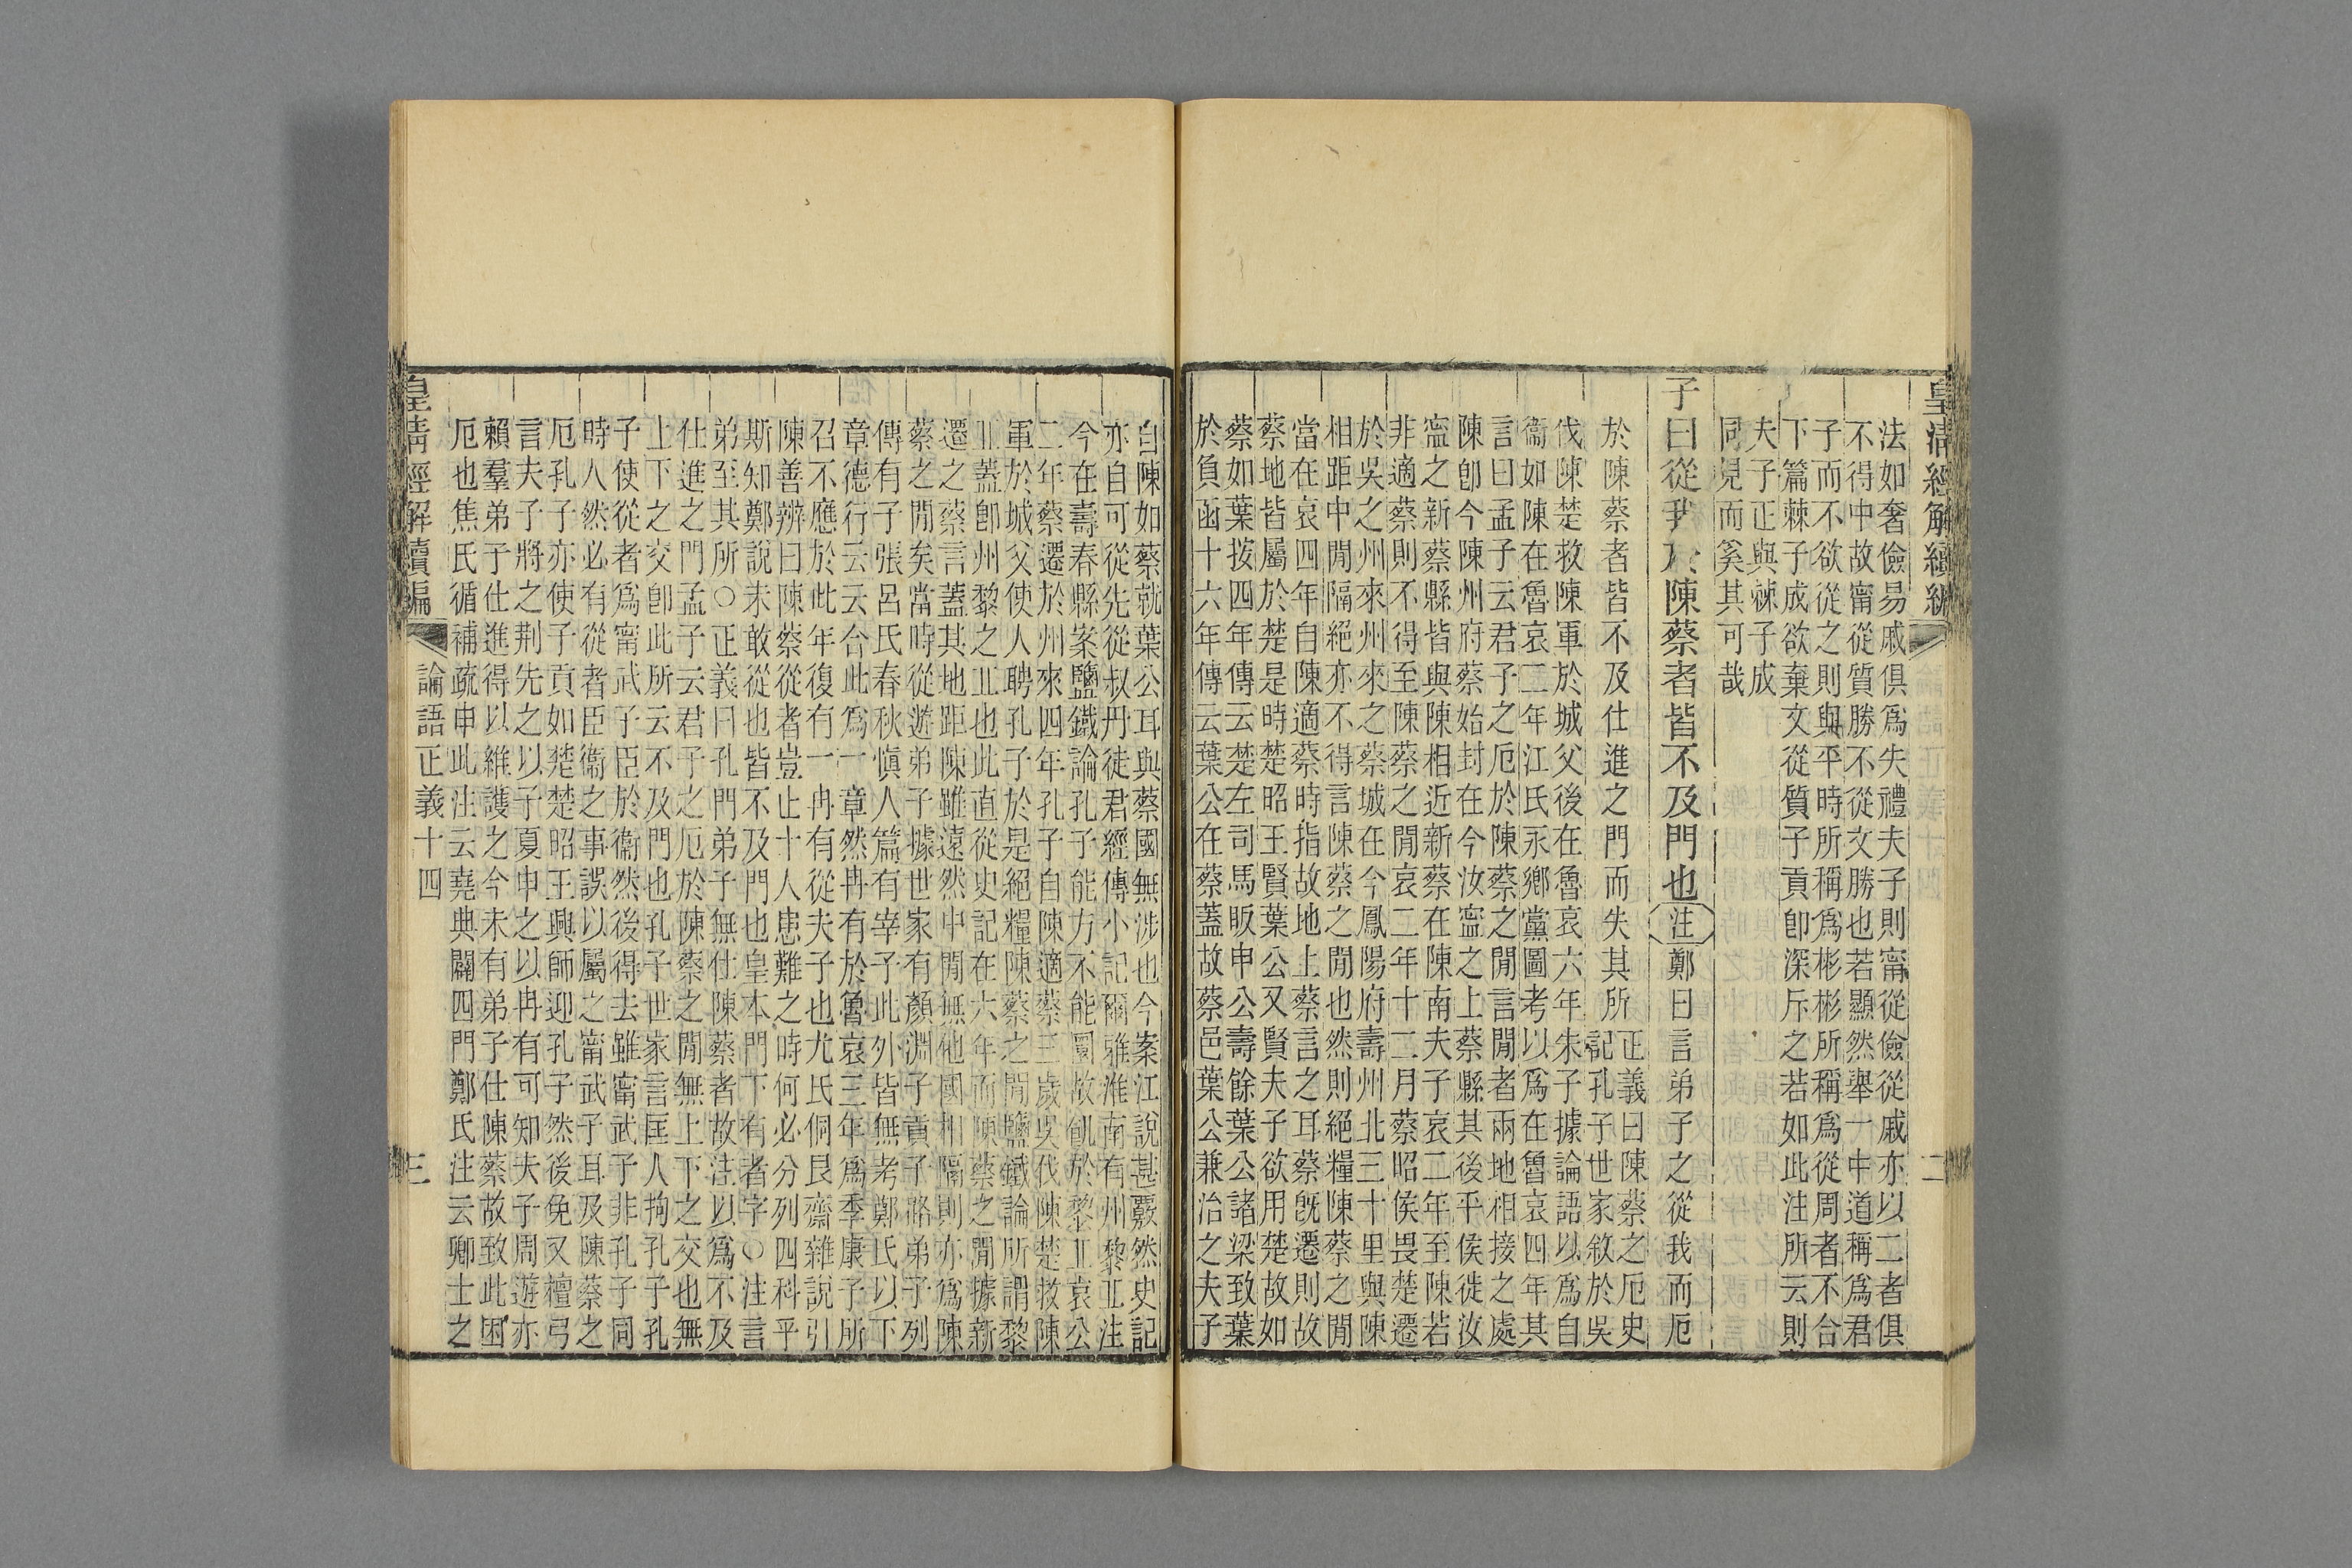 皇清經解續編
二
法如奢儉易戚俱爲失禮夫子則甯從儉從戚亦以二者俱
不得中故甯從質勝不從文勝也若顯然舉一中道稱爲君
子而不欲從之則與平時所稱爲彬彬所稱爲從周者不合
下篇棘子成欲棄文從質子貢卽深斥之若如此注所云則
夫子正與棘子成
同見而奚其可哉
子曰從我於陳蔡者皆不及門也注鄭曰言弟子之從我而厄
於陳蔡者皆不及仕進之門而失其所
正義曰陳蔡之厄史
記孔子世家敘於吳
伐陳楚救陳軍於城父後在魯哀六年朱子據論語以爲自
衞如陳在魯哀二年江氏永鄉黨圖考以爲在魯哀四年其
言曰孟子云君子之厄於陳蔡之閒言閒者兩地相接之處
陳卽今陳州府蔡始封在今汝寧之上蔡縣其後平侯徙汝
寧之新蔡縣皆與陳相近新蔡在陳南夫子哀二年至陳若
非適蔡則不得至陳蔡之閒哀二年十二月蔡昭侯畏楚遷
於吳之州來州來之蔡城在今鳳陽府壽州北三十里與陳
相距中閒隔絕亦不得言陳蔡之閒也然則絕糧陳蔡之閒
當在哀四年自陳適蔡時指故地上蔡言之耳蔡旣遷則故
蔡地皆屬於楚是時楚昭王賢葉公又賢夫子欲用楚故如
蔡如葉按四年傳云楚左司馬眅申公壽餘葉公諸梁致葉
於負函十六年傳云葉公在蔡蓋故蔡邑葉公兼治之夫子
自陳如蔡就葉公耳與蔡國無涉也今案江說甚覈然史記
亦自可從先從叔丹徒君經傳小記爾雅淮南有州黎丘注
今在壽春縣案鹽鐵論孔子能方不能圜故飢於黎丘哀公
二年蔡遷於州來四年孔子自陳適蔡三歲吳伐陳楚救陳
軍於城父使人聘孔子於是絕糧陳蔡之閒鹽鐵論所謂黎
丘蓋卽州黎之丘也此直從史記在六年而陳蔡之閒據新
遷之蔡言蓋其地距陳雖遠然中閒無他國相隔則亦爲陳
蔡之閒矣當時從遊弟子據世家有顏淵子貢子路弟子列
傳有子張呂氏春秋愼人篇有宰予此外皆無考鄭氏以下
章德行云云合此爲一章然冉有於魯哀三年爲季康子所
召不應於此年復有一冉有從夫子也尤氏侗艮齋雜說引
陳善辨曰陳蔡從者豈止十人患難之時何必分列四科平
斯知鄭說未敢從也皆不及門也皇本門下有者字○注言
弟至其所○正義曰孔門弟子無仕陳蔡者故注以爲不及
仕進之門孟子云君子之厄於陳蔡之閒無上下之交也無
上下之交卽此所云不及門也孔子世家言匡人拘孔子孔
子使從者爲甯武子臣於衞然後得去雖甯武子非孔子同
時人然必有從者臣衞之事誤以屬之甯武子耳及陳蔡之
厄孔子亦使子貢如楚楚昭王興師迎孔子然後免又檀弓
言夫子將之荆先之以子夏申之以冉有可知夫子周遊亦
賴羣弟子仕進得以維護之今未有弟子仕陳蔡故致此困
厄也焦氏循補疏申此注云堯典闢四門鄭氏注云卿士之
皇淸經解續編
論語正義十四
三